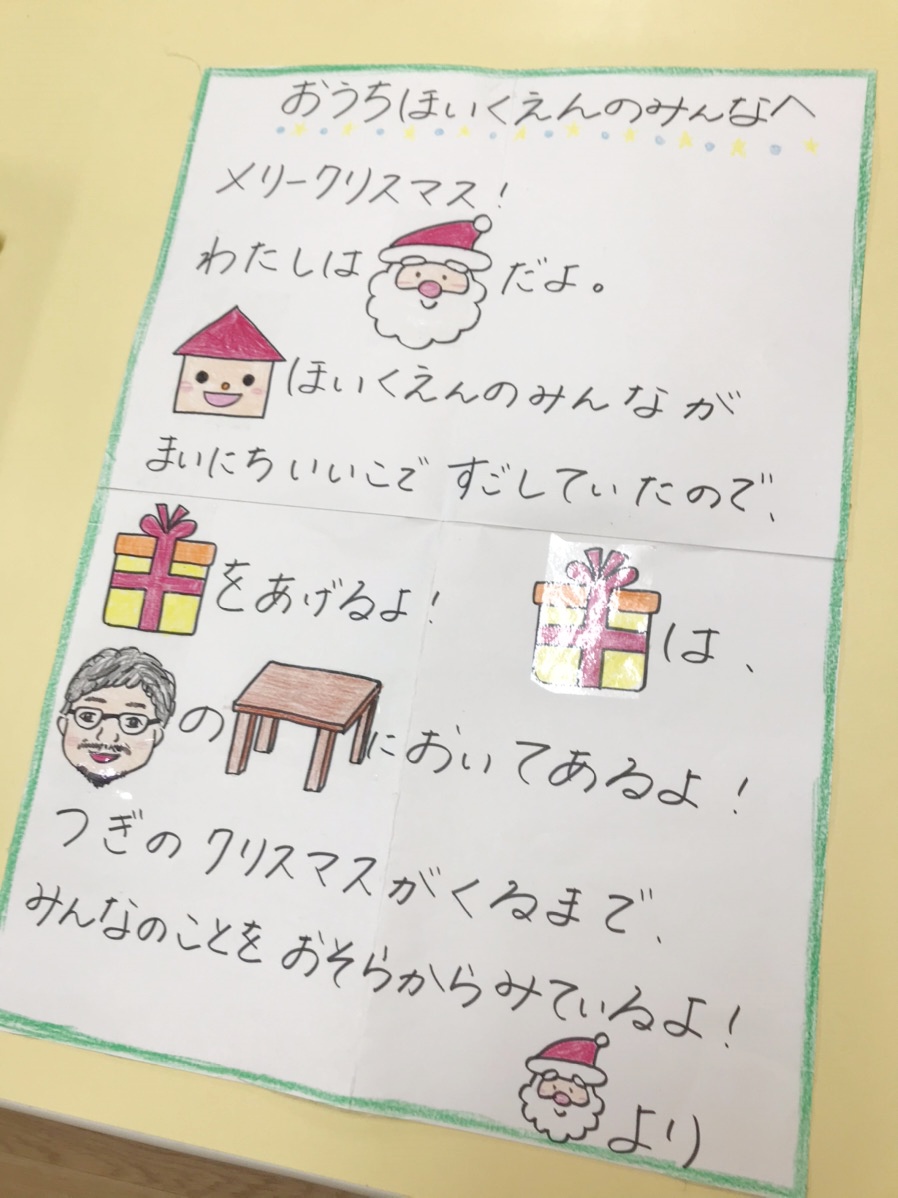 おうちほいくえんのみんなへ
メリークリスマス！
わたしは だよ。
ほいくえんのみんなが
まいにちいいこで すごしていたので、
をあげるよ！ は、
の においてあるよ！
つぎの クリスマスがくるまで、
みんなのことを おそらからみているよ！
より